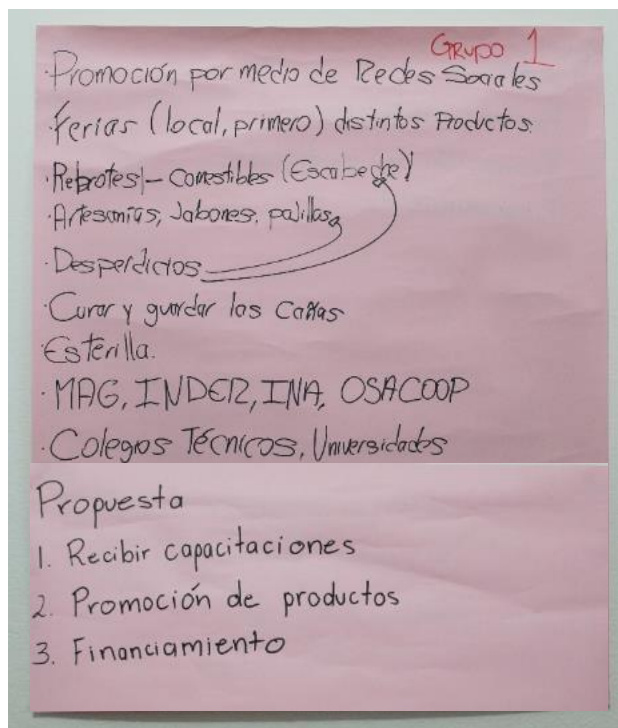 Grupo 1
·Promoción por medio de Redes Sociales
·Ferias (local, primero) distintos Productos.
·Rebrotes - Comestibles (Escabeche)
·Artesanías, Jabones, palillos
·Desperdicios
·Curar y guardar las Cañas
·Esterilla.
·MAG, INDER, INA, OSACOOP
·Colegios Técnicos, Universidades
Propuesta
1. Recibir capacitaciones
2. Promoción de productos
3. Financiamiento